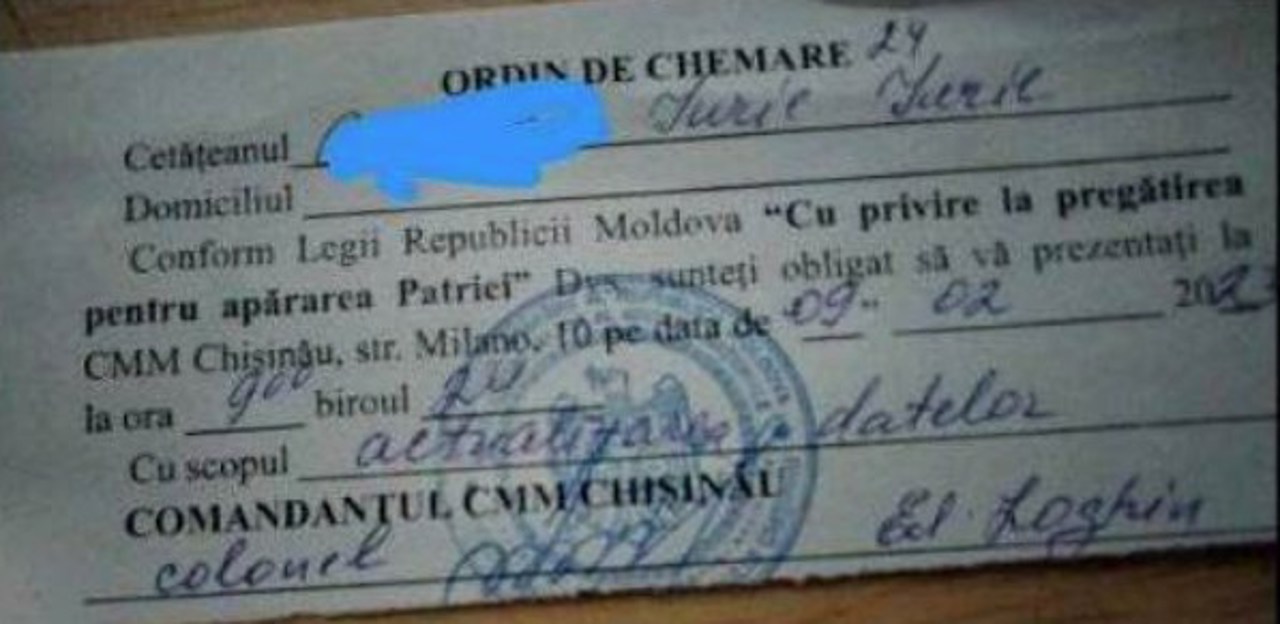 ORDIN DE CHEMARE 24
Cetățeanul Iurie Iurie
Domiciliul
Conform Legii Republicii Moldova “Cu privire la pregătirea
pentru apărarea Patriei” Dvs. sunteți obligat să vă prezentați la
CMM Chișinău, str. Milano, 10 pe data de "09" 02 2023
la ora 9 00 biroul
Cu scopul actualizarea datelor
COMANDANTUL CMM CHIȘINĂU
colonel Ed. Loghin